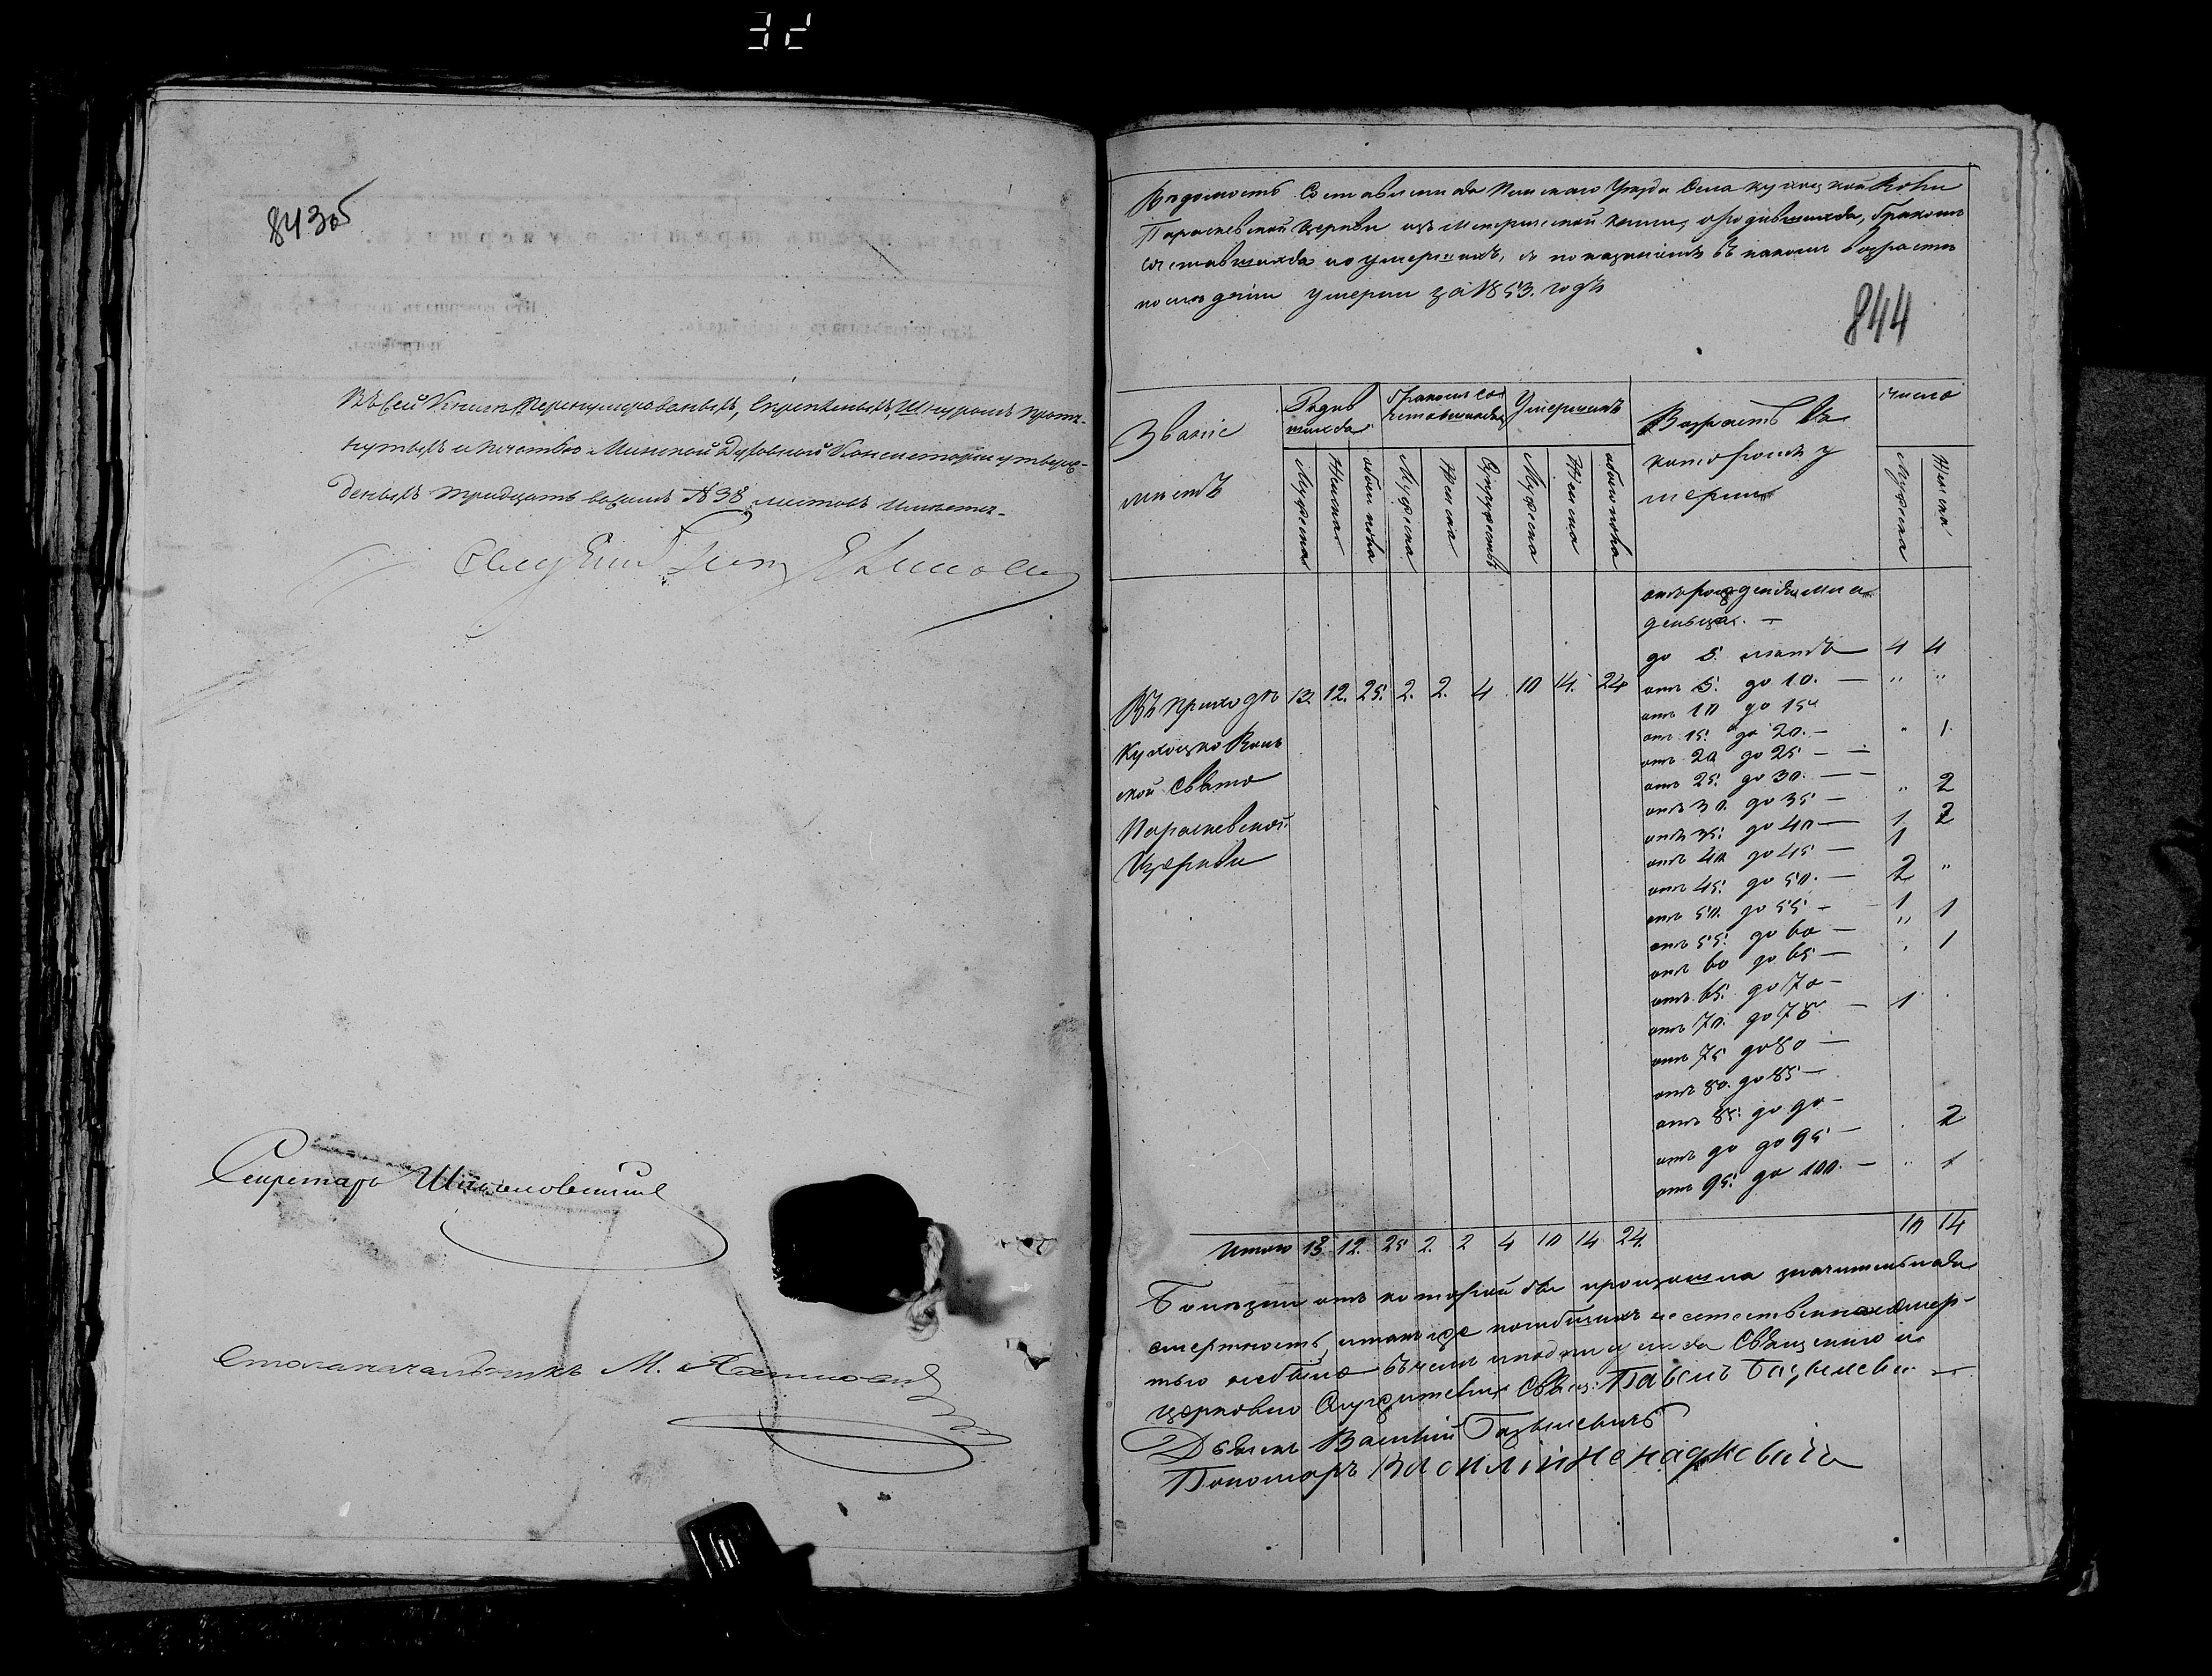 32
843об
Въ сей Книгѣ Перенумерованныхъ, Скрепленныхъ, Шнуромъ протя-
нутыхъ и печатью Минской Духовной Консисторіи утверж-
денныхъ тридцать восемь № 38 листовъ имѣется.
Секретарь
Столоначальникъ М.
844
Вѣдомость Составленная Пинскаго Уѣзда Села Кухоцкой Воли
Параскевской Церкви изъ Метрической книги, о родившихся, бракомъ
сочетавшихся и о умершихъ, съ показаніемъ въ какомъ возрастѣ
послѣдніи умерли за 1853. годъ
Званіе мѣстъ
Родившихся
Бракомъ сочетавшихся
Умершихъ
Возрастъ въ которомъ умерли
число
Мужеска Женска обоих пола Мужеска Женска Супружествъ Мужеска Женска обоих пола Мужеска Женска
отъ рожденія младенца. —
до 5. лѣтъ — 4 4
Въ приходѣ 13. 12. 25. 2. 2. 4. 10 14. 24
отъ 5. до 10. — " "
отъ 10 до 15
Кухоцко Воль
отъ 15. до 20. — " 1.
отъ 20 до 25 —
ской Свято
отъ 25. до 30. — — " 2
отъ 30. до 35 —
Параскевской
отъ 35. до 40 — 1 2
отъ 40 до 45 — 1
Церкви
отъ 45. до 50. — 2 "
отъ 50. до 55 — 1 1
отъ 55. до 60 — "
отъ 60 до 65 — . 1
отъ 65. до 70 —
отъ 70. до 75 — 1 .
отъ 75 до 80 —
отъ 80. до 85 —
отъ 85. до 90 —
отъ 90 до 95 — . 2
отъ 95. до 100. — " 1
Итого 13. 12. 25 2. 2 4 10 14 24. 10 14
Болезни отъ которой бы произошла значительная
смертность, также погибшихъ неестественною смер-
тью небыло въ чемъ и подписуемся Священно и
церковно Служители Свящ: Павелъ Базылеви
Дьячекъ Василій Базылевичъ
Пономарь Василій Ненадкевичъ